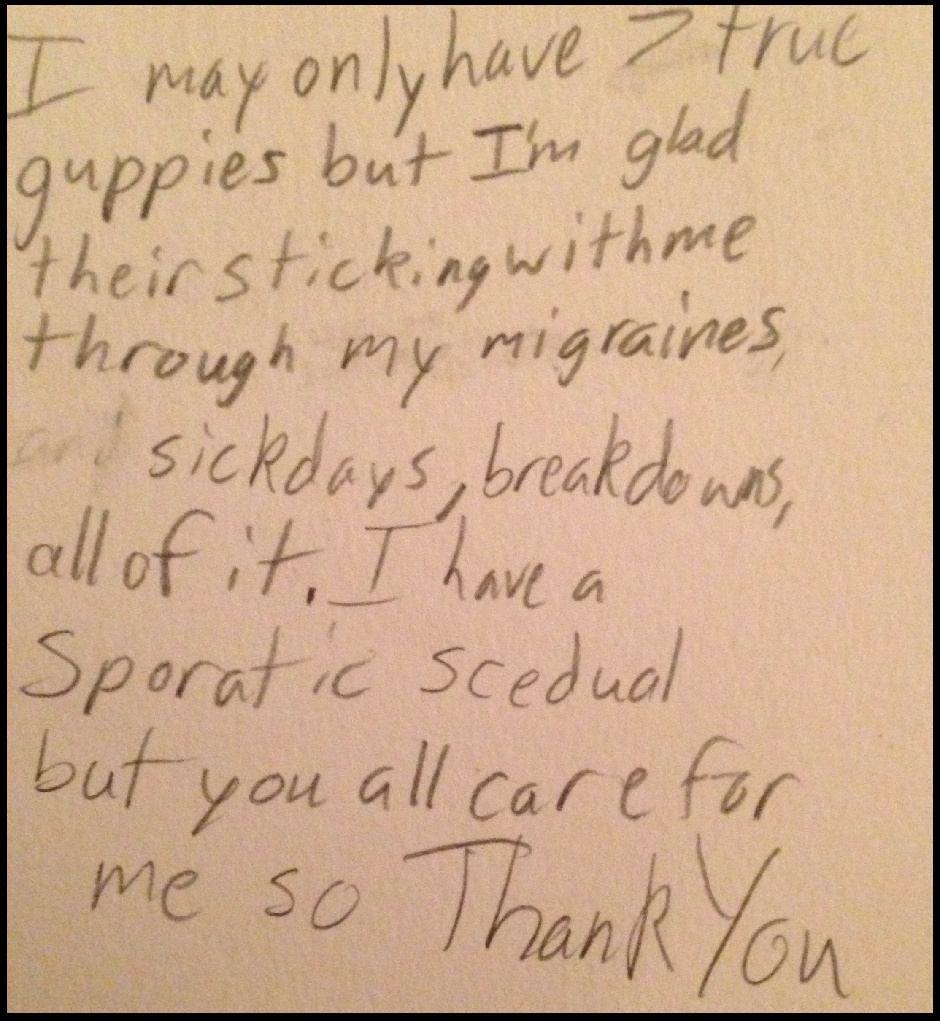 I may only have 2 true
guppies but I'm glad
their sticking with me
through my migraines,
and sickdays, breakdowns,
all of it. I have a
Sporatic scedual
but you all care for
me so Thank You